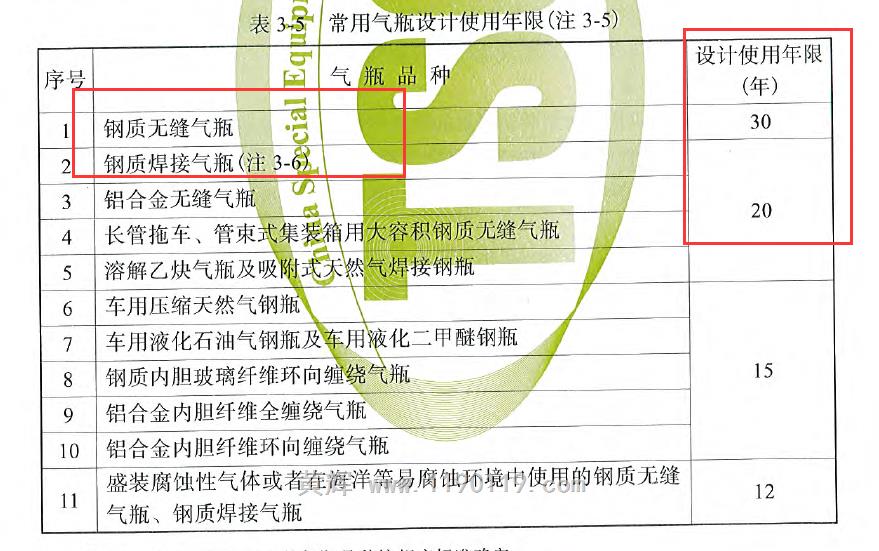 表 3-5 常用气瓶设计使用年限(注 3-5)
序号 气瓶品种 设计使用年限(年)
1 钢质无缝气瓶 30
2 钢质焊接气瓶(注 3-6) 20
3 铝合金无缝气瓶
4 长管拖车、管束式集装箱用大容积钢质无缝气瓶
5 溶解乙炔气瓶及吸附式天然气焊接钢瓶
6 车用压缩天然气钢瓶 15
7 车用液化石油气钢瓶及车用液化二甲醚钢瓶
8 钢质内胆玻璃纤维环向缠绕气瓶
9 铝合金内胆纤维全缠绕气瓶
10 铝合金内胆纤维环向缠绕气瓶
11 盛装腐蚀性气体或者在海洋等易腐蚀环境中使用的钢质无缝 12
气瓶、钢质焊接气瓶
Special Equipm